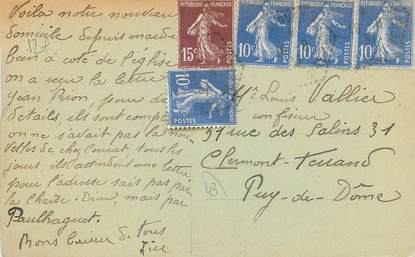 Voila notre nouveau
domicile depuis mardi
bien a coté de l'église
on a eu la lettre
Jean Rion, pour
details, ils sont
on ne s'avait pas la nou
velles de chez tous les
jours, ils attendent une lettre
pour l'adresse sais pas par
la Chaise. Dieu, mais par
Paulhaguet.
Bons baisers de tous
REPUBLIQUE FRANÇAISE
15c POSTES
REPUBLIQUE FRANÇAISE
10c POSTES
REPUBLIQUE FRANÇAISE
10c POSTES
REPUBLIQUE FRANÇAISE
10c POSTES
REPUBLIQUE FRANÇAISE
10c POSTES
Mr Louis Vallier
confiseur
rue des Salins 31
Clermont-Ferrand
Puy-de-Dôme